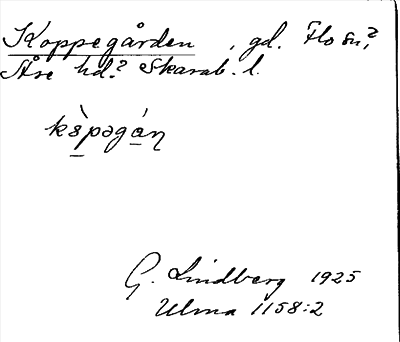 Koppegården, gd. Flo sn?,
Åse hd.? Skarab. l.
kɵ̀pəgán
G. Lindberg 1925
Ulma 1158:2